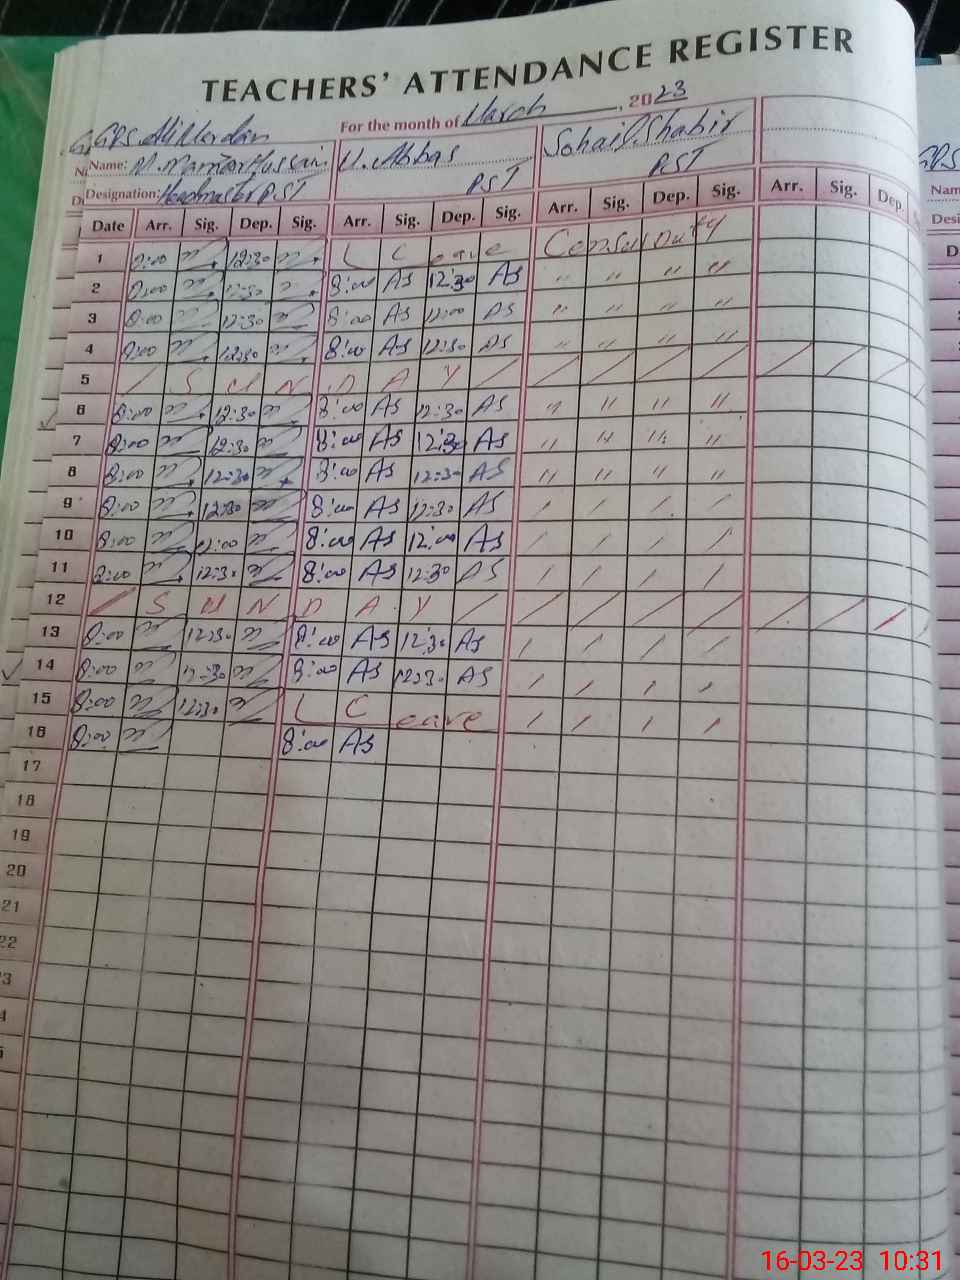 TEACHERS' ATTENDANCE REGISTER
GPS Ali Mardan For the month of March, 2023
Name: M. Mumtaz Hussain U. Abbas Sohail Shabir
Designation: Headmaster PST PST PST
Date Arr. Sig. Dep. Sig. Arr. Sig. Dep. Sig. Arr. Sig. Dep. Sig. Arr. Sig. Dep.
1 8:00 12:30 L C eave Census Duty
2 8:00 12:30 8:00 AS 12:30 AS " " " "
3 8:00 12:30 8:00 AS 12:00 AS " " " "
4 8:00 12:30 8:00 AS 12:30 AS " " " "
5 / S U N D A Y / / / / / / / /
6 8:00 12:30 8:00 AS 12:30 AS " " " "
7 8:00 12:30 8:00 AS 12:30 AS " " " "
8 8:00 12:30 8:00 AS 12:30 AS " " " "
9 8:00 12:30 8:00 AS 12:30 AS / / / /
10 8:00 12:00 8:00 AS 12:00 AS / / / /
11 8:00 12:30 8:00 AS 12:30 AS / / / /
12 / S U N D A Y / / / / / / / /
13 8:00 12:30 8:00 AS 12:30 AS / / / /
14 8:00 12:30 8:00 AS 12:30 AS / / / /
15 8:00 12:30 L C eave / / / /
16 8:00 8:00 AS
17
18
19
20
21
22
16-03-23 10:31